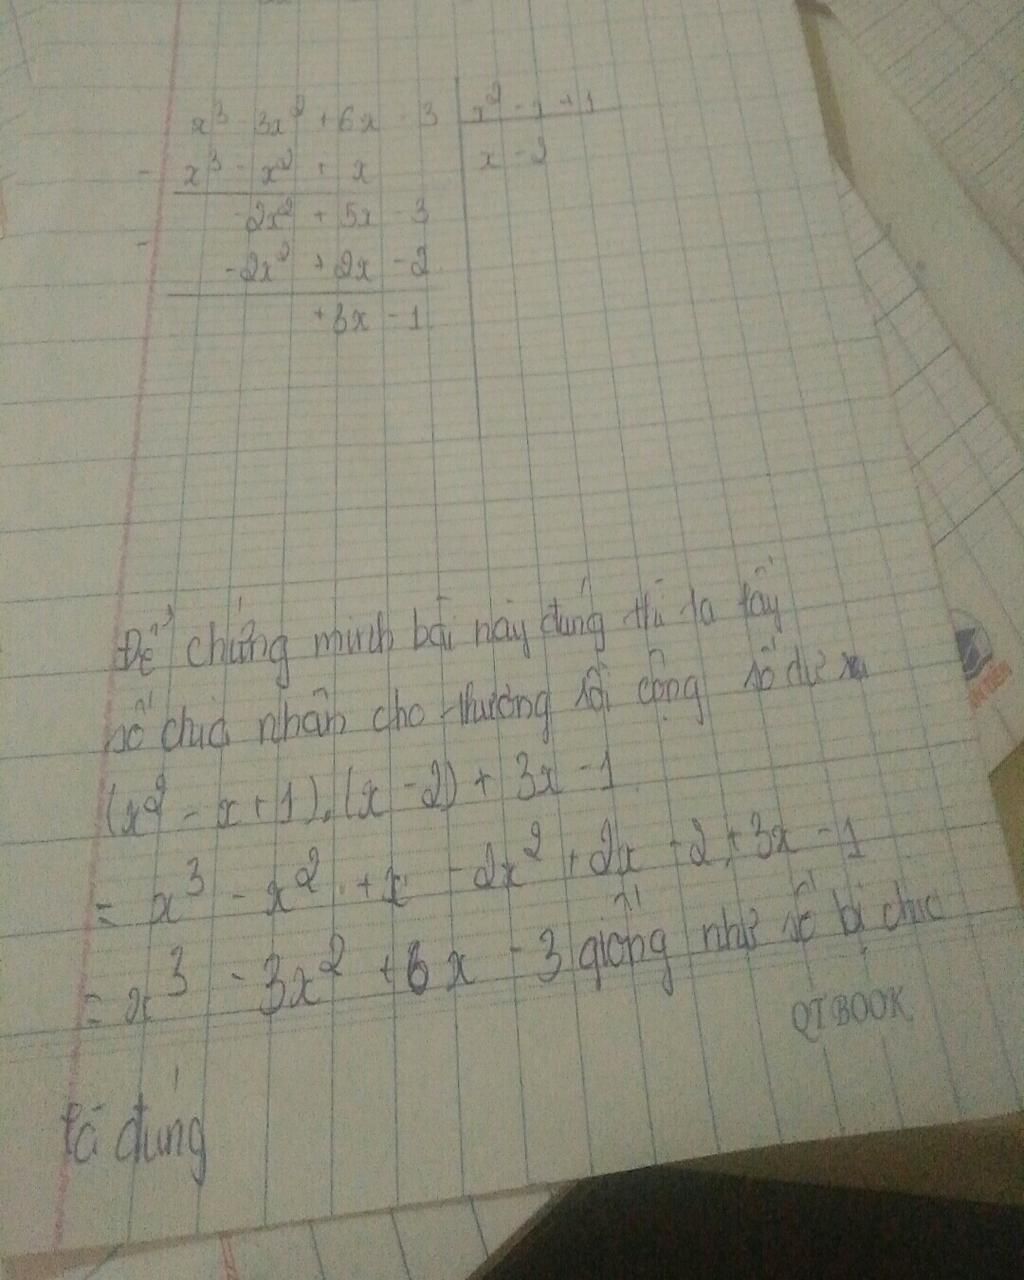 x³ - 3x² + 6x - 3 | x² - x + 1
- x³ - x² + x x - 2
-2x² + 5x - 3
- -2x² + 2x - 2
+3x - 1
Để chứng minh bài này đúng thì ta lấy
số chia nhân cho thương rồi cộng số dư
(x² - x + 1).(x - 2) + 3x - 1
= x³ - x² + x - 2x² + 2x - 2 + 3x - 1
= x³ - 3x² + 6x - 3 giống như số bị chia
QT BOOK
là đúng